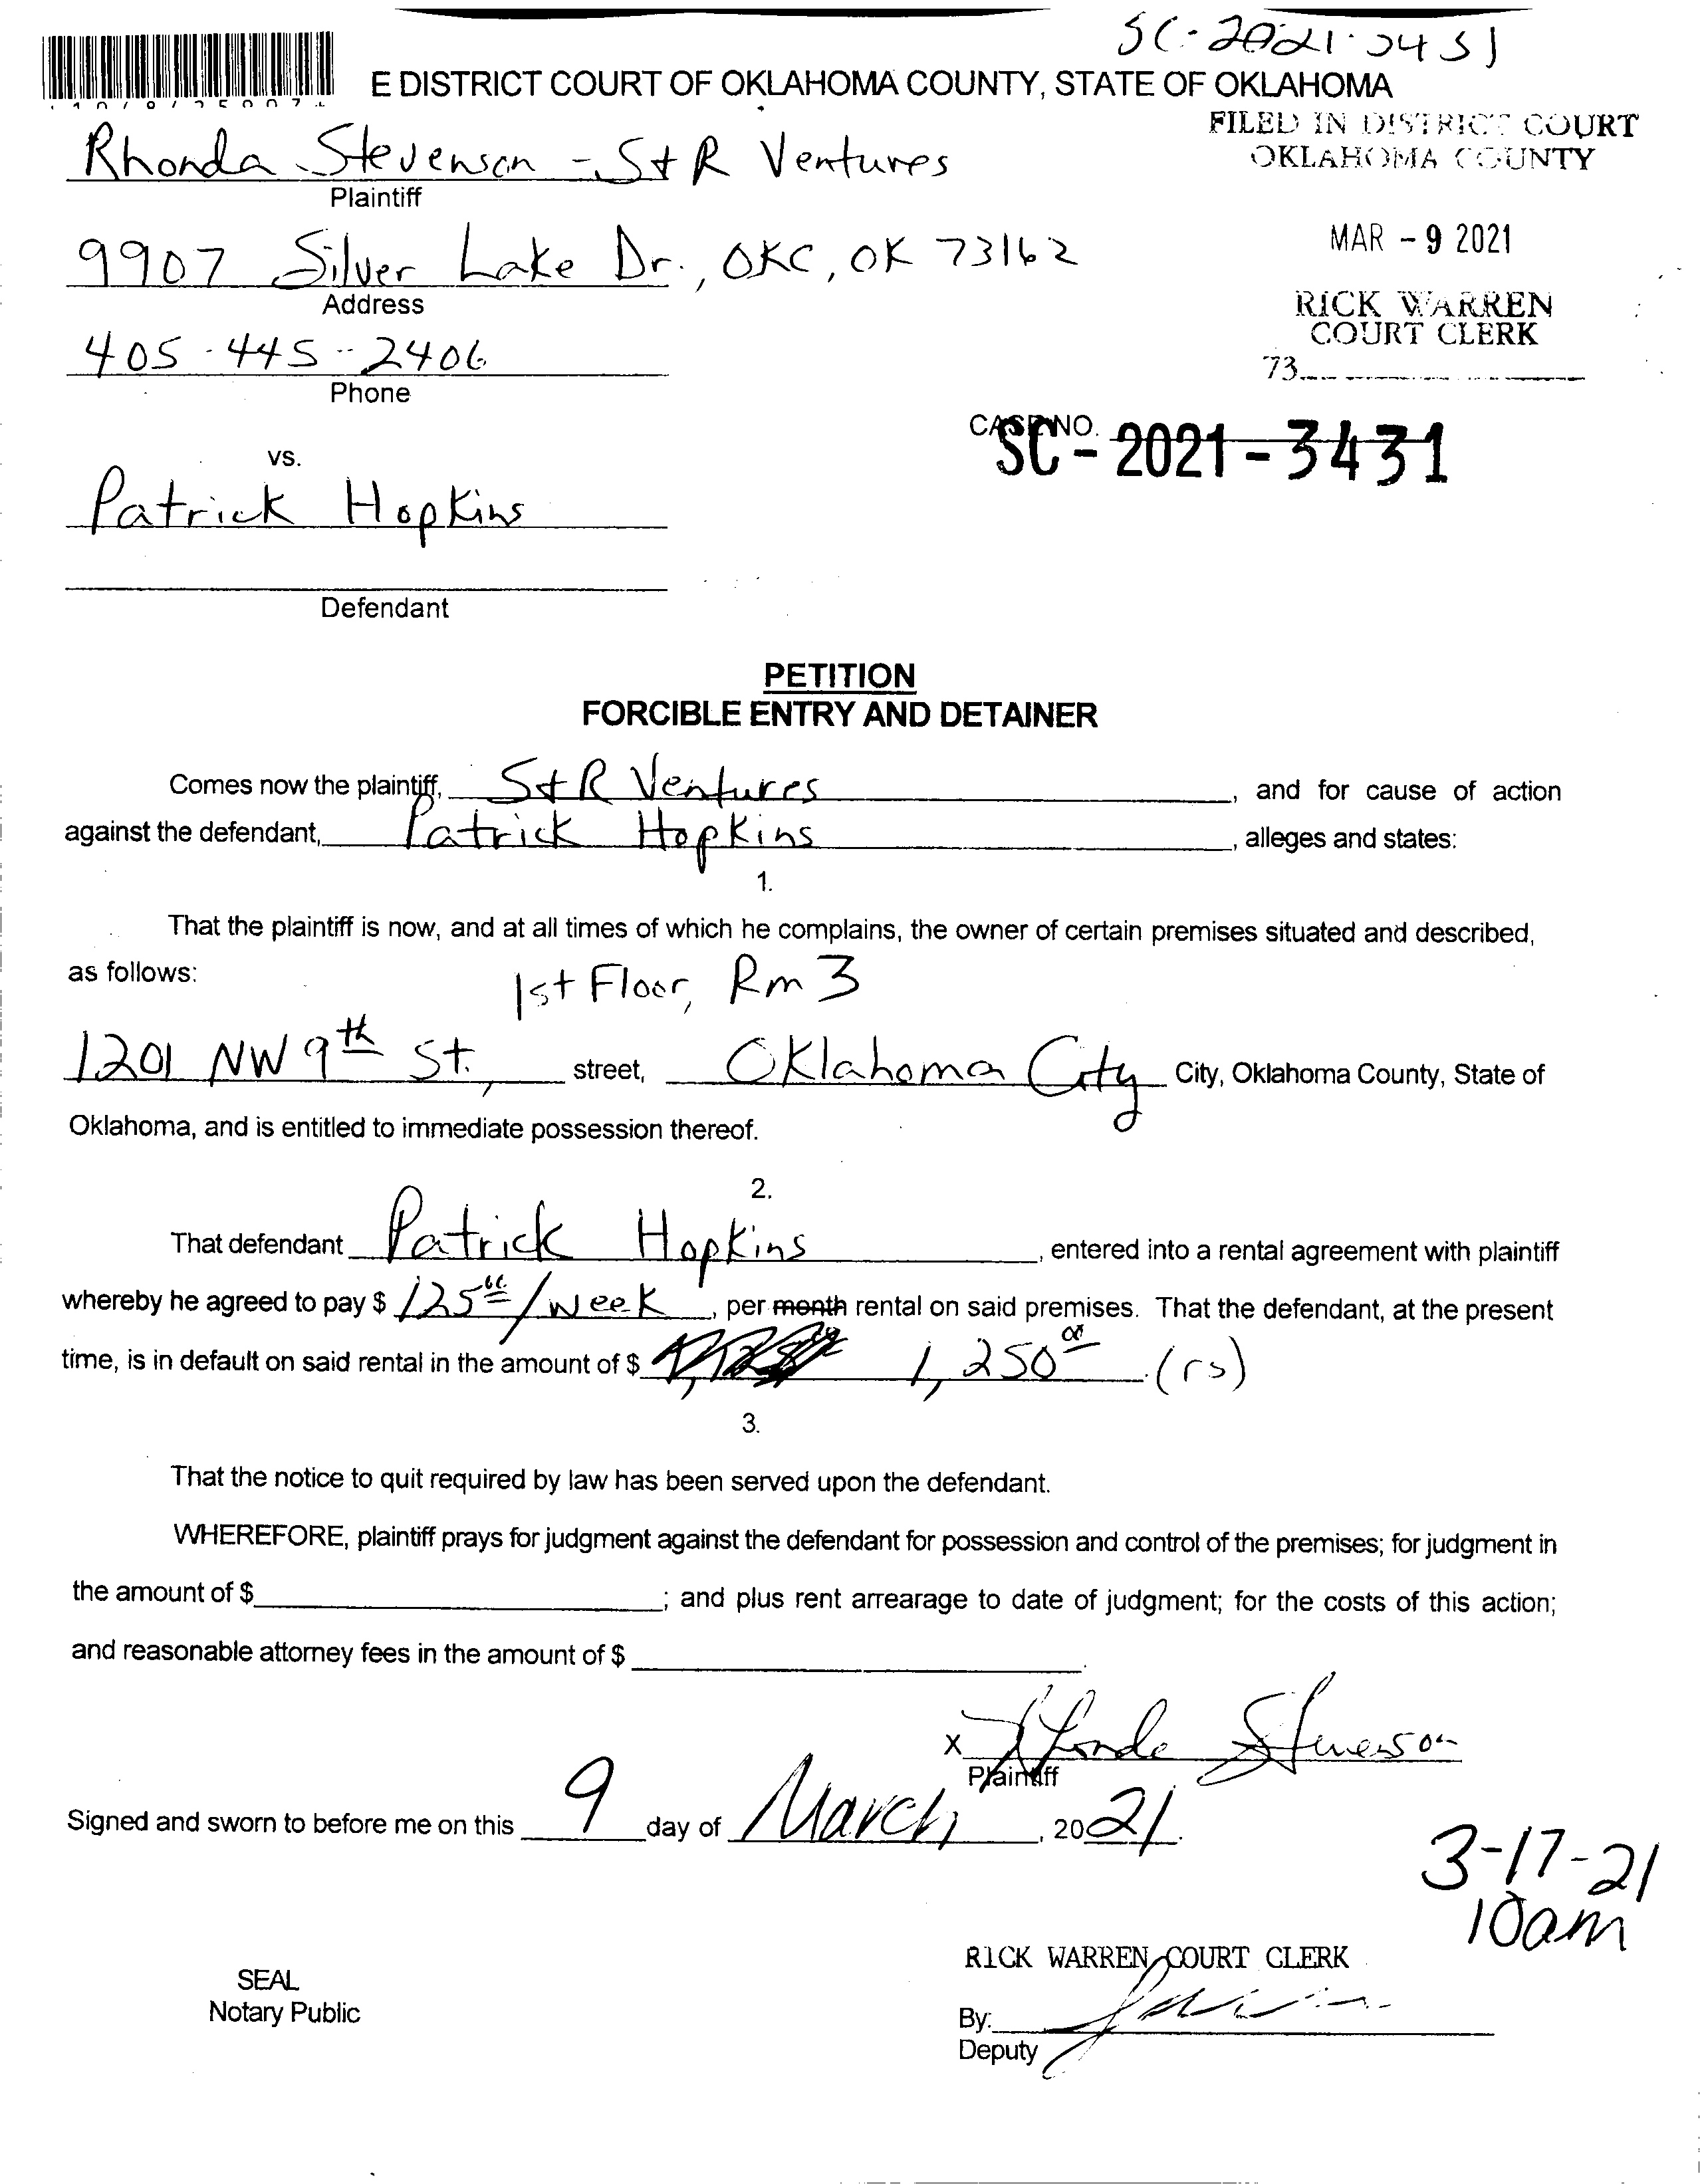 SC-2021-3431
E DISTRICT COURT OF OKLAHOMA COUNTY, STATE OF OKLAHOMA
FILED IN DISTRICT COURT
OKLAHOMA COUNTY
Rhonda Stevenson - S+R Ventures
Plaintiff
MAR - 9 2021
9907 Silver Lake Dr., OKC, OK 73162
Address
RICK WARREN
COURT CLERK
405-445-2406
73
Phone
CASE NO.
SC - 2021 - 3431
vs.
Patrick Hopkins
Defendant
PETITION
FORCIBLE ENTRY AND DETAINER
Comes now the plaintiff, S+R Ventures, and for cause of action
against the defendant, Patrick Hopkins, alleges and states:
1.
That the plaintiff is now, and at all times of which he complains, the owner of certain premises situated and described,
as follows:
1st Floor, Rm 3
1201 NW 9th St., street, Oklahoma City City, Oklahoma County, State of
Oklahoma, and is entitled to immediate possession thereof.
2.
That defendant Patrick Hopkins, entered into a rental agreement with plaintiff
whereby he agreed to pay $ 125 00/week, per month rental on said premises. That the defendant, at the present
time, is in default on said rental in the amount of $ 1,250 00 (rs)
3.
That the notice to quit required by law has been served upon the defendant.
WHEREFORE, plaintiff prays for judgment against the defendant for possession and control of the premises; for judgment in
the amount of $ ; and plus rent arrearage to date of judgment; for the costs of this action;
and reasonable attorney fees in the amount of $ .
X Rhonda Stevenson
Plaintiff
Signed and sworn to before me on this 9 day of March, 2021.
3-17-21
10am
RICK WARREN COURT CLERK
SEAL
Notary Public
By:
Deputy